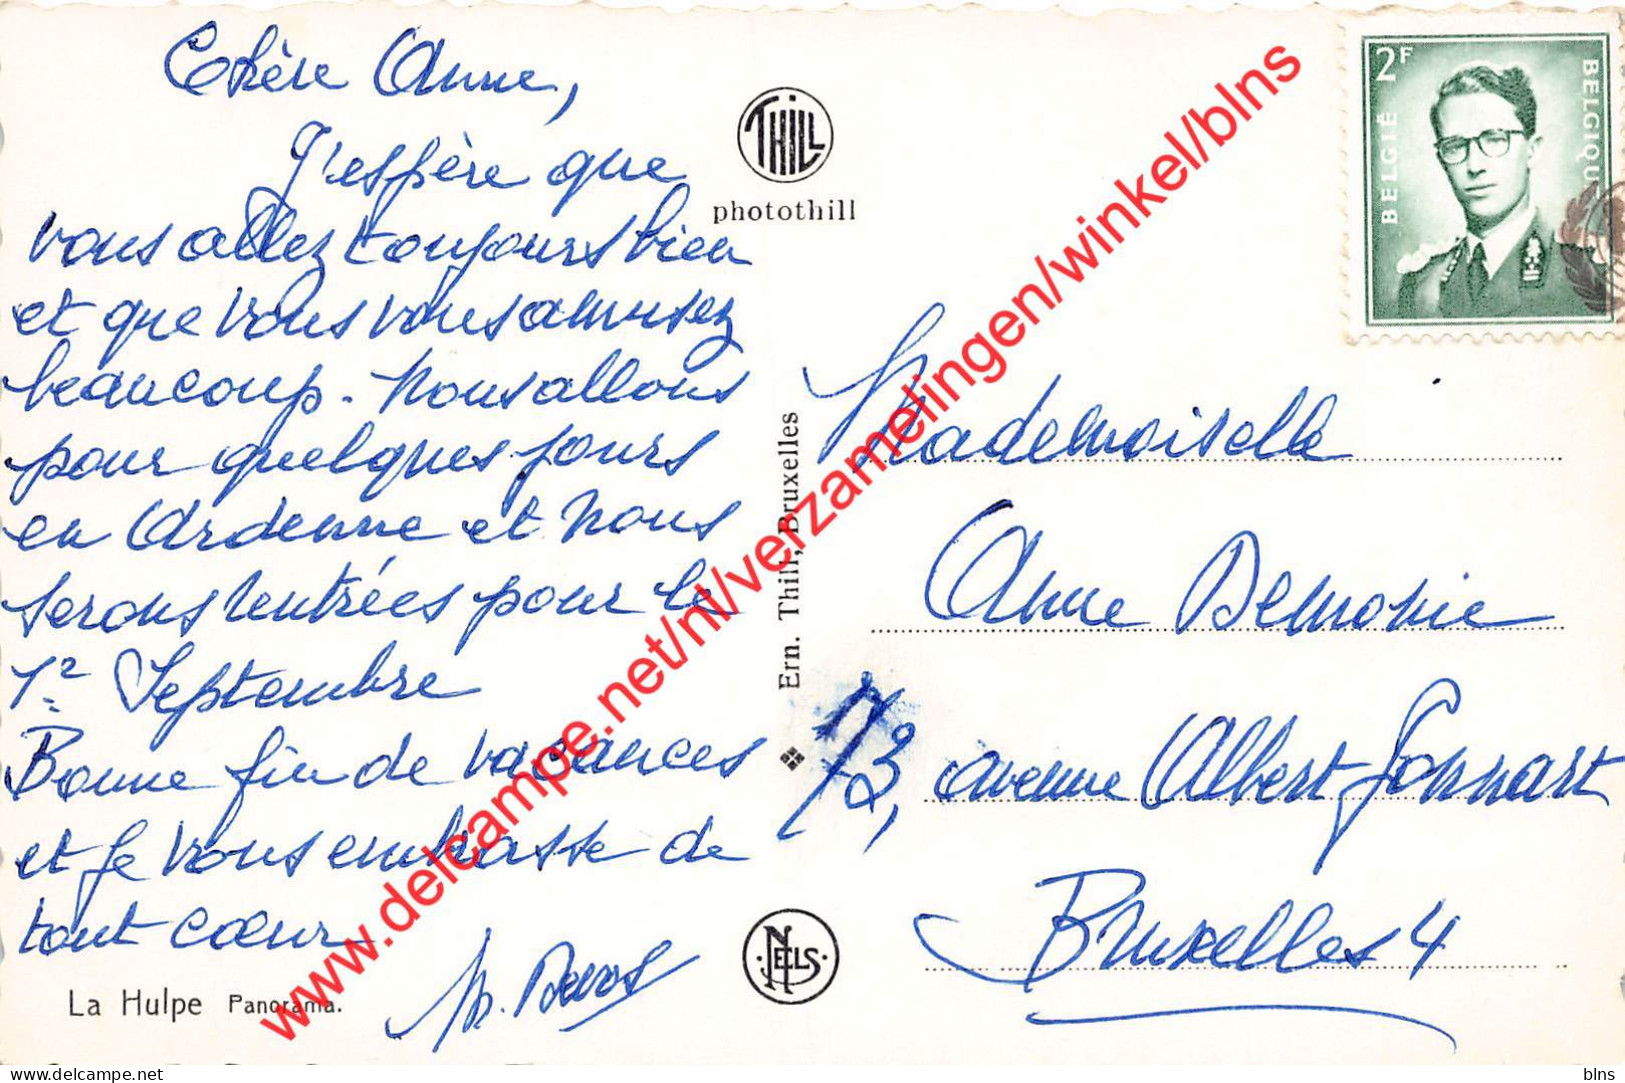 Chère Anne,
J'espère que
vous allez toujours bien
et que vous vous amusez
beaucoup. Nous allons
pour quelques jours
en Ardenne et nous
serons rentrées pour le
1er Septembre
Bonne fin de vacances
et je vous embrasse de
tout cœur
M. Devos
La Hulpe Panorama.
THILL
photothill
Ern. Thill, Bruxelles
NELS
2F
BELGIË
BELGIQUE
Mademoiselle
Anne
73, avenue Albert Jonnart
Bruxelles 4
www.delcampe.net/nl/verzamelingen/winkel/blns
#182.481.082
blns